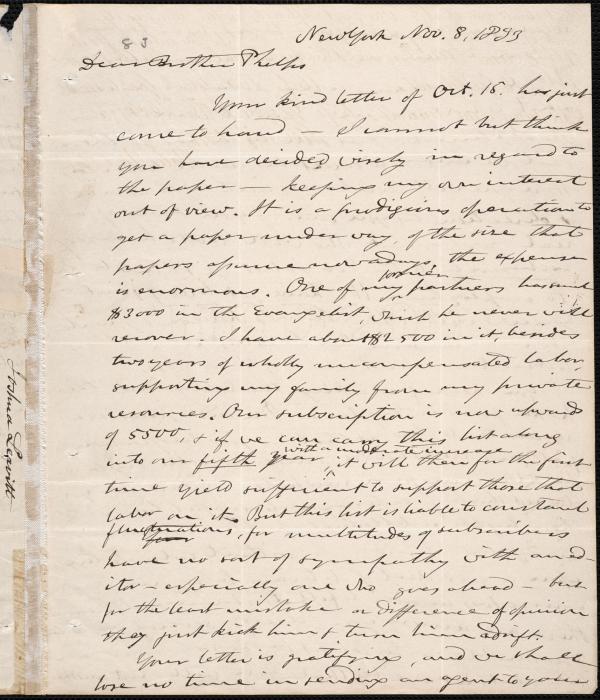 83
New York Nov. 8, 1833
Dear Brother Phelps
Your kind letter of Oct. 16. has just
come to hand — I cannot but think
you have decided wisely in regard to
the paper — keeping my own interest
out of view. It is a prodigious operation to
get a paper under way, of the size that
papers assume now a days, the expense
is enormous. One of my former partners has sunk
$3000 in the Evangelist, which he never will
recover. I have about $2500 in it, besides
two years of wholly uncompensated labor,
supporting my family from my private
resources. Our subscription is now upwards
of 5500, & if we can carry this list along
into our fifth year with a moderate increase, it will then for the first
time yield sufficient to support those that
labor on it. But this list is liable to constant
fluctuations, for multitudes of subscribers
have no sort of sympathy with an ed-
itor — especially one who goes ahead — but
for the least mistake or difference of opinion
they just kick him & turn him adrift.
Your letter is gratifying, and we shall
lose no time in sending an agent to your
Joshua Leavitt